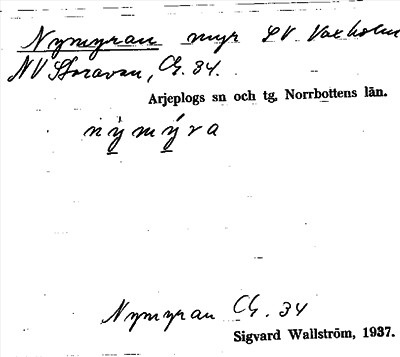 Nymyran myr SV Vaxholm
NV Storavan, Ch. 34.
Arjeplogs sn och tg, Norrbottens län.
nỳmýra
Nymyran Ch. 34
Sigvard Wallström, 1937.